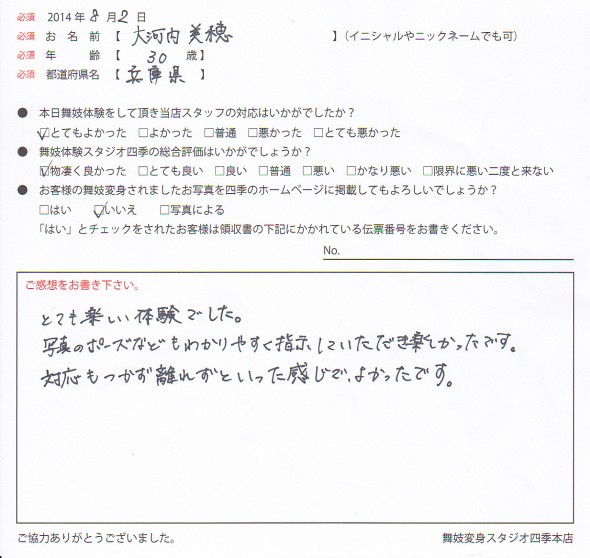 必須 2014 年 8 月 2 日
必須 お 名 前 【 大河内 美穂 】（イニシャルやニックネームでも可）
必須 年 齢 【 30 歳 】
必須 都道府県名 【 兵庫県 】
● 本日舞妓体験をして頂き当店スタッフの対応はいかがでしたか？
☑とてもよかった □よかった □普通 □悪かった □とても悪かった
● 舞妓体験スタジオ四季の総合評価はいかがでしょうか？
☑物凄く良かった □とても良い □良い □普通 □悪い □かなり悪い □限界に悪い二度と来ない
● お客様の舞妓変身されましたお写真を四季のホームページに掲載してもよろしいでしょうか？
□はい ☑いいえ □写真による
「はい」とチェックをされたお客様は領収書の下記にかかれている伝票番号をお書きください。
No.
ご感想をお書き下さい。
とても楽しい体験でした。
写真のポーズなどもわかりやすく指示していただき楽しかったです。
対応もつかず離れずといった感じで、よかったです。
ご協力ありがとうございました。
舞妓変身スタジオ四季本店